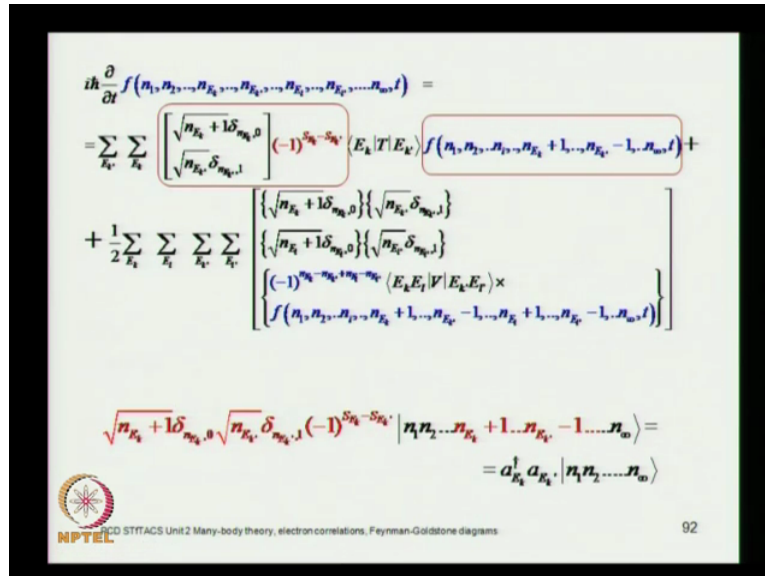 iħ ∂/∂t f(n₁,n₂,..,n_{E_k},..,n_{E_k'},..,n_{E_l},..,n_{E_l'},....n_∞,t) =
=∑_{E_k'} ∑_{E_k} [√(n_{E_k}+1)δ_{n_{E_k},0} √(n_{E_k'})δ_{n_{E_k'},1}] (−1)^{S_{E_k}−S_{E_k'}} ⟨E_k|T|E_k'⟩ f(n₁,n₂,..n_i,..,n_{E_k}+1,..,n_{E_k'}−1,..n_∞,t)+
+ 1/2 ∑_{E_k} ∑_{E_l} ∑_{E_k'} ∑_{E_l'} [{√(n_{E_k}+1)δ_{n_{E_k},0}}{√(n_{E_k'})δ_{n_{E_k'},1}}
{√(n_{E_l}+1)δ_{n_{E_l},0}}{√(n_{E_l'})δ_{n_{E_l'},1}}
{(−1)^{n_{E_k}−n_{E_k'}+n_{E_l}−n_{E_l'}} ⟨E_kE_l|V|E_k'E_l'⟩×
f(n₁,n₂,..n_i,.,n_{E_k}+1,..,n_{E_k'}−1,..,n_{E_l}+1,..,n_{E_l'}−1,..n_∞,t)}]
√(n_{E_k}+1)δ_{n_{E_k},0}√(n_{E_k'})δ_{n_{E_k'},1}(−1)^{S_{E_k}−S_{E_k'}}|n₁n₂...n_{E_k}+1..n_{E_k'}−1....n_∞⟩=
=a†_{E_k}a_{E_k'}|n₁n₂.....n_∞⟩
NPTEL
PCD STiTACS Unit 2 Many-body theory, electron correlations, Feynman-Goldstone diagrams
92